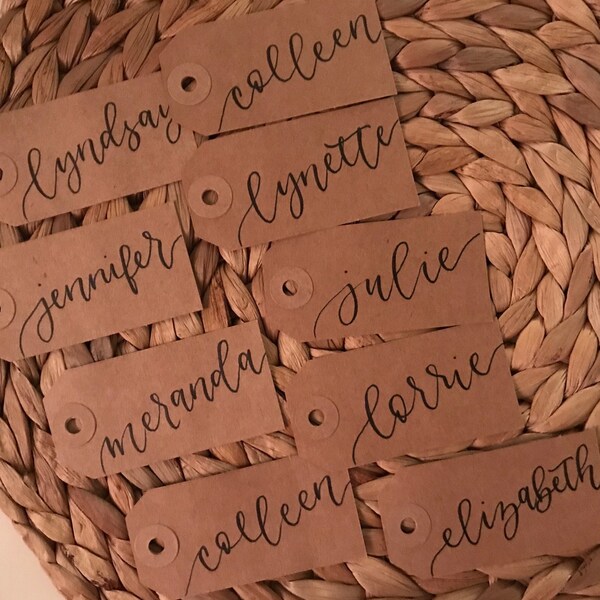 colleen
lyndsay
lynette
jennifer
julie
meranda
lorrie
colleen
elizabeth